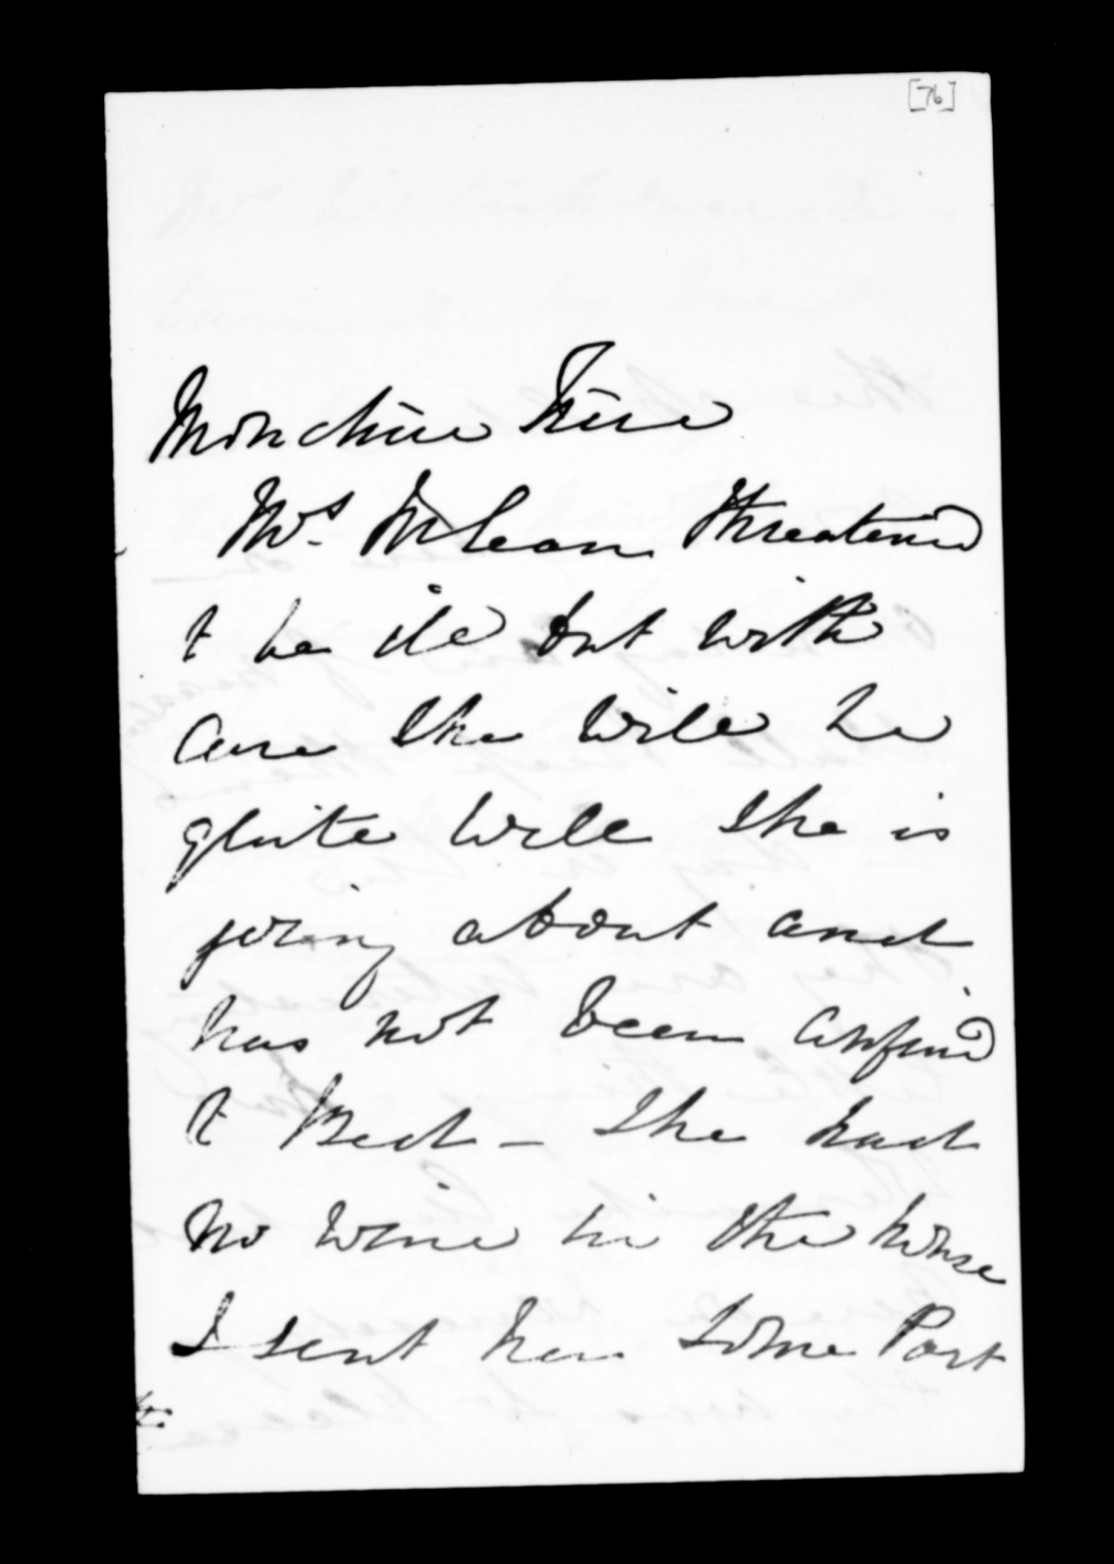 [76]
Mon chère Frère
Mrs. McLean threatened
to be ill but with
care she will be
quite well she is
going about and
has not been confined
to Bed - She had
no wine in the house
I sent her some Port